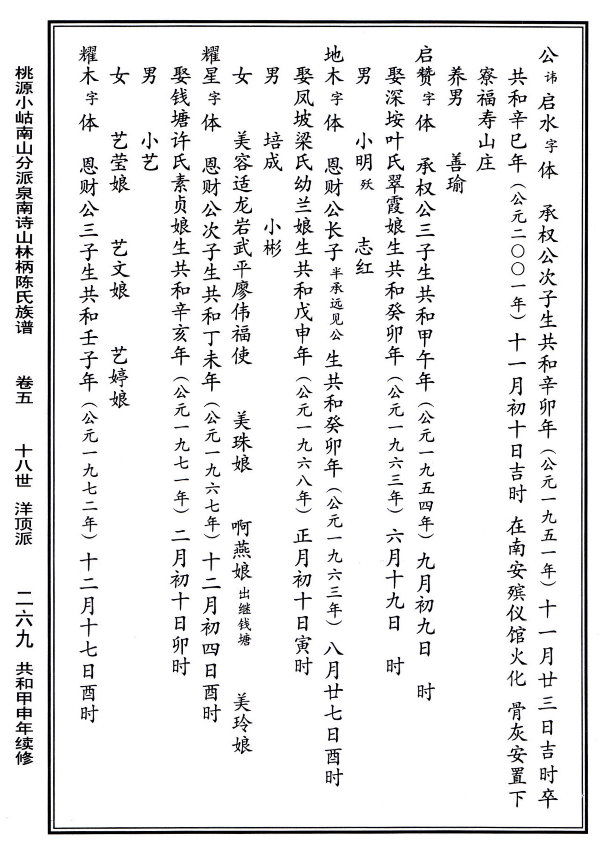 公讳启水字 体 承权公次子生共和辛卯年（公元一九五一年）十一月廿三日吉时卒
共和辛巳年（公元二〇〇一年）十一月初十日吉时 在南安殡仪馆火化 骨灰安置下
寮福寿山庄
养男 善瑜
启赞字 体 承权公三子生共和甲午年（公元一九五四年）九月初九日 时
娶深垵叶氏翠霞娘生共和癸卯年（公元一九六三年）六月十九日 时
男 小明殁 志红
地木字 体 恩财公长子半承远见公生共和癸卯年（公元一九六三年）八月廿七日酉时
娶凤坡梁氏幼兰娘生共和戊申年（公元一九六八年）正月初十日寅时
男 培成 小彬
女 美容适龙岩武平廖伟福使 美珠娘 啊燕娘出继钱塘 美玲娘
耀星字 体 恩财公次子生共和丁未年（公元一九六七年）十二月初四日酉时
娶钱塘许氏素贞娘生共和辛亥年（公元一九七一年）二月初十日卯时
男 小艺
女 艺莹娘 艺文娘 艺婷娘
耀木字 体 恩财公三子生共和壬子年（公元一九七二年）十二月十七日酉时
桃源小岵南山分派泉南诗山林柄陈氏族谱 卷五 十八世 洋顶派 二六九 共和甲申年续修